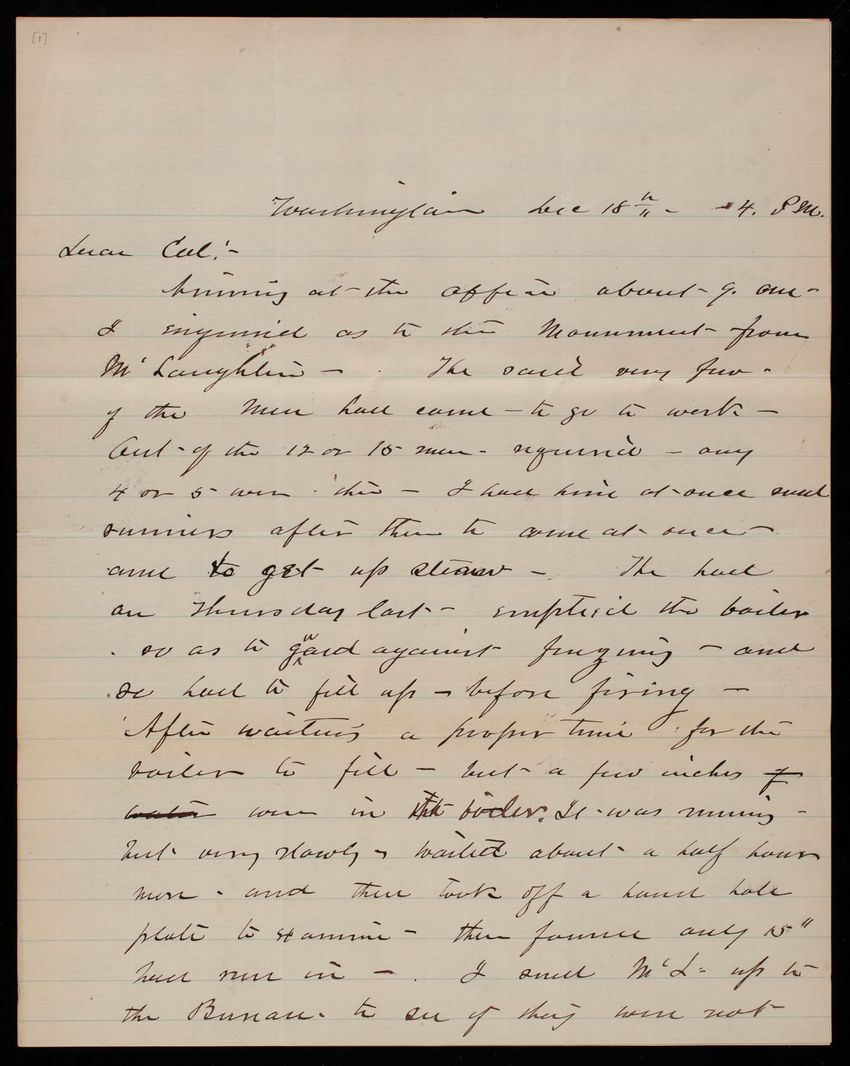 [1]
Washington Dec 18th - 4. P.M.
Dear Col:-
Arriving at the office about 9. am -
I inquired as to the Monument from
McLaughlin - . He said very few -
of the men had come - to go to work -
Out of the 12 or 15 men - required - only
4 or 5 were there - I had him at once send
runners after them to come at once -
and to get up steam - He had
on Thursday last - emptied the boiler
so as to guard against freezing - and
so had to fill up - before firing -
After waiting a proper time for the
boiler to fill - but a few inches of
water were in the boiler. It was running -
but very slowly - waited about a half hour
more - and then took off a hand hole
plate to examine - then found only 15"
had run in - . I send McL - up to
the Bureau - to see if they were not